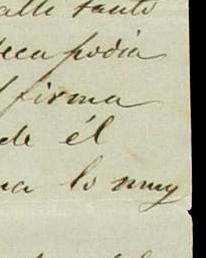 alli tanto
podia
firma
de él
lo muy